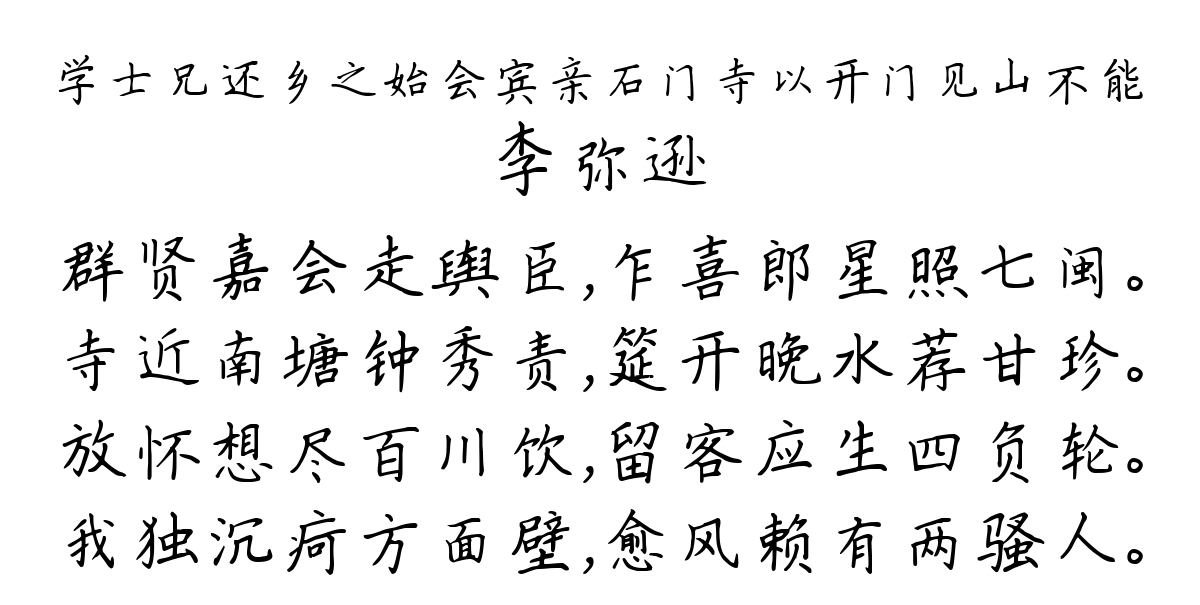 学士兄还乡之始会宾亲石门寺以开门见山不能
李弥逊
群贤嘉会走舆臣,乍喜郎星照七闽。
寺近南塘钟秀责,筵开晚水荐甘珍。
放怀想尽百川饮,留客应生四负轮。
我独沉疴方面壁,愈风赖有两骚人。